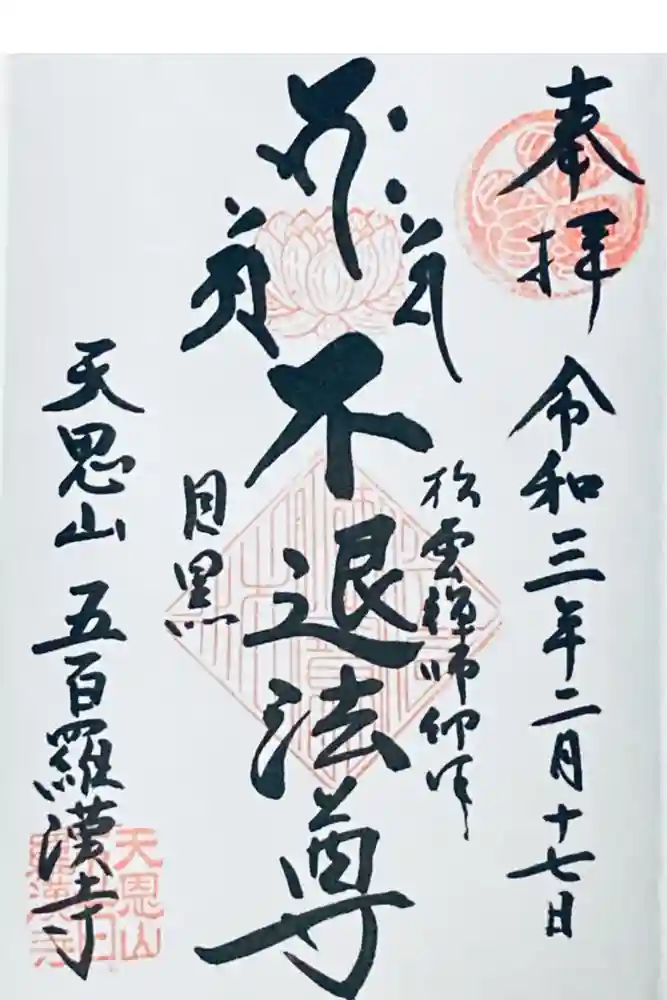 奉拝
令和三年二月十七日
松雲禅師御作
不退法尊
目黒
天恩山 五百羅漢寺
天恩山
羅漢寺